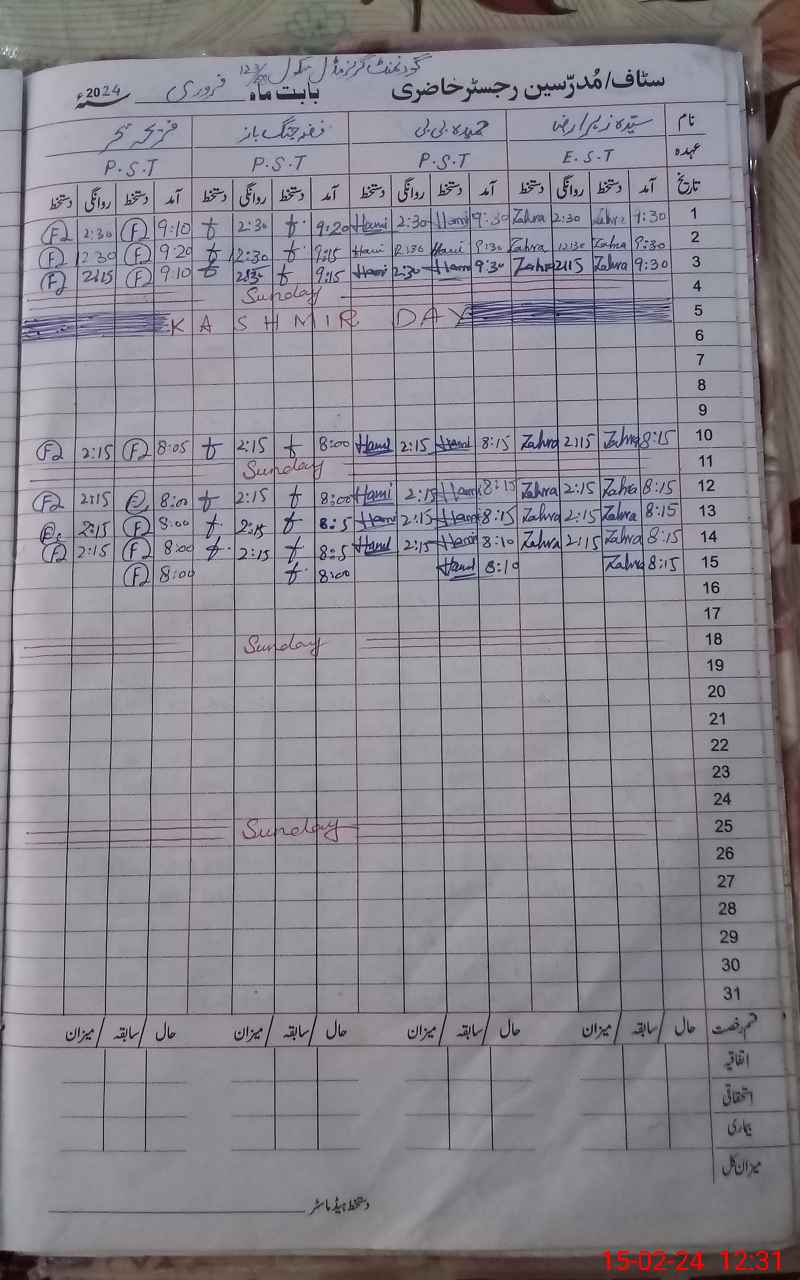 گورنمنٹ گرلز مڈل سکول
سٹاف/مُدرّسین رجسٹر حاضری بابت ماہ فروری سنہ 2024ء
نام سیّدہ زہرا رضا حمیدہ بی بی
عہدہ E.S.T P.S.T P.S.T P.S.T
تاریخ آمد دستخط روانگی دستخط آمد دستخط روانگی دستخط آمد دستخط روانگی دستخط آمد دستخط روانگی دستخط
1 9:30 Zahra 2:30 Zahra 9:30 Hami 2:30 Hami 9:20 t 2:30 t 9:10 F2 2:30 F2
2 9:30 Zahra 12:30 Zahra 9:30 Hami 12:30 Hami 9:15 t 12:30 t 9:20 F2 12:30 F2
3 9:30 Zahra 2:15 Zahra 9:30 Hami 2:30 Hami 9:15 t 2:30 t 9:10 F2 2:15 F2
4 Sunday
5 KASHMIR DAY
6
7
8
9
10 8:15 Zahra 2:15 Zahra 8:15 Hami 2:15 Hami 8:00 t 2:15 t 8:05 F2 2:15 F2
11 Sunday
12 8:15 Zahra 2:15 Zahra 8:15 Hami 2:15 Hami 8:00 t 2:15 t 8:00 2:15 F2
13 8:15 Zahra 2:15 Zahra 8:15 Hami 2:15 Hami 8:5 t 2:15 t 8:00 F2 2:15
14 8:15 Zahra 2:15 Zahra 8:10 Hami 2:15 Hami 8:5 t 2:15 t 8:00 F2 2:15 F2
15 8:15 Zahra 8:10 Hami 8:00 t 8:00 F2
16
17
18 Sunday
19
20
21
22
23
24
25 Sunday
26
27
28
29
30
31
قسم رخصت حال/سابقہ/میزان حال/سابقہ/میزان حال/سابقہ/میزان حال/سابقہ/میزان
اتفاقیہ
استحقاقی
بیماری
میزان کل
دستخط ہیڈ ماسٹر
15-02-24 12:31